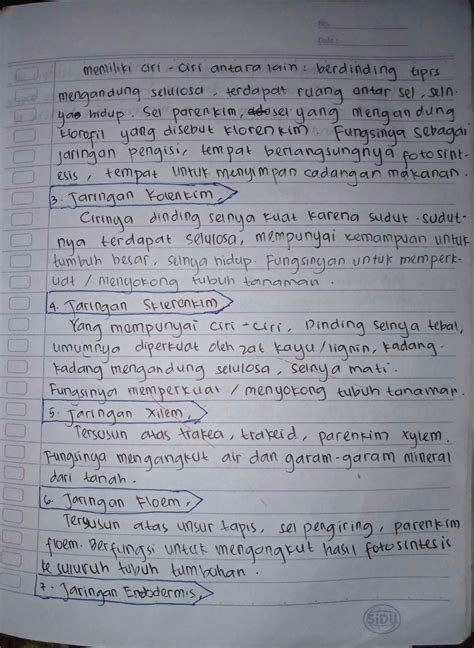 No.
Date :
memiliki ciri - ciri antara lain : berdinding tipis
mengandung selulosa, terdapat ruang antar sel, seln
ya hidup. Sel parenkim, sel yang mengandung
klorofil yang disebut klorenkim. Fungsinya sebagai
jaringan pengisi, tempat berlangsungnya fotosint-
esis, tempat untuk menyimpan cadangan makanan.
3. Jaringan Kolenkim,
Cirinya dinding selnya kuat karena sudut-sudut-
nya terdapat selulosa, mempunyai kemampuan untuk
tumbuh besar, selnya hidup. Fungsinyan untuk memperk-
uat / menyokong tubuh tanaman.
4. Jaringan Sklerenkim
Yang mempunyai ciri - ciri, Dinding selnya tebal,
umumnya diperkuat oleh zat kayu/lignin, kadang-
kadang mengandung selulosa, selnya mati.
Fungsinya memperkuat / menyokong tubuh tanaman.
5. Jaringan Xilem,
Tersusun atas trakea, trakeid, parenkim xylem.
Fungsinya mengangkut air dan garam-garam mineral
dari tanah.
6. Jaringan Floem,
Tersusun atas unsur tapis, sel pengiring, parenkim
floem. Berfungsi untuk mengangkut hasil fotosintesis
ke suluruh tubuh tumbuhan.
7. Jaringan Endodermis,
SiDU